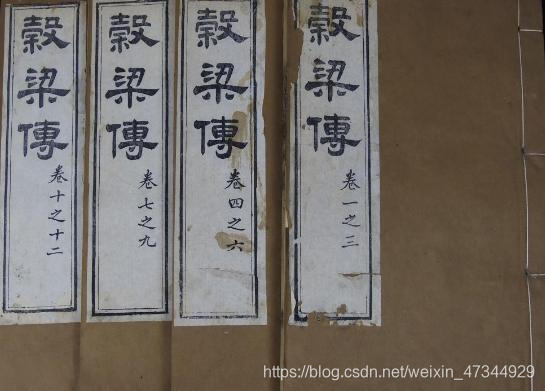 穀梁傳
卷一之三
穀梁傳
卷四之六
穀梁傳
卷七之九
穀梁傳
卷十之十二
https://blog.csdn.net/weixin_47344929